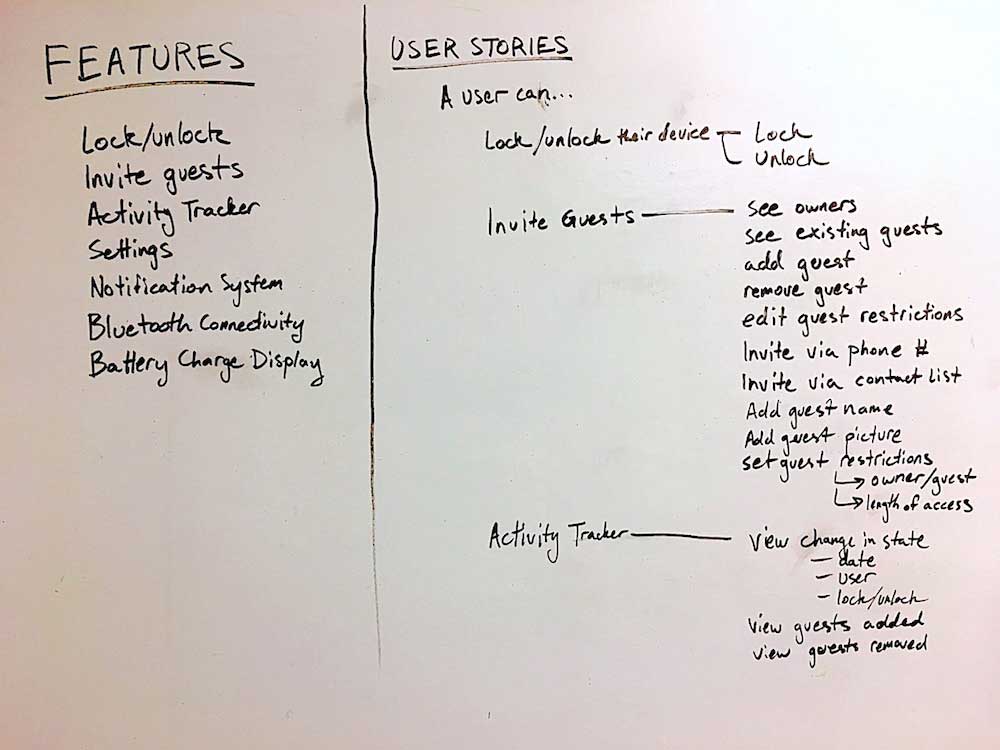 FEATURES
Lock/unlock
Invite guests
Activity Tracker
Settings
Notification System
Bluetooth Connectivity
Battery Charge Display
USER STORIES
A user can...
Lock/unlock their device
Lock
Unlock
Invite Guests
see owners
see existing guests
add guest
remove guest
edit guest restrictions
Invite via phone #
Invite via contact list
Add guest name
Add guest picture
set guest restrictions
owner/guest
length of access
Activity Tracker
View change in state
- date
- user
- lock/unlock
view guests added
view guests removed